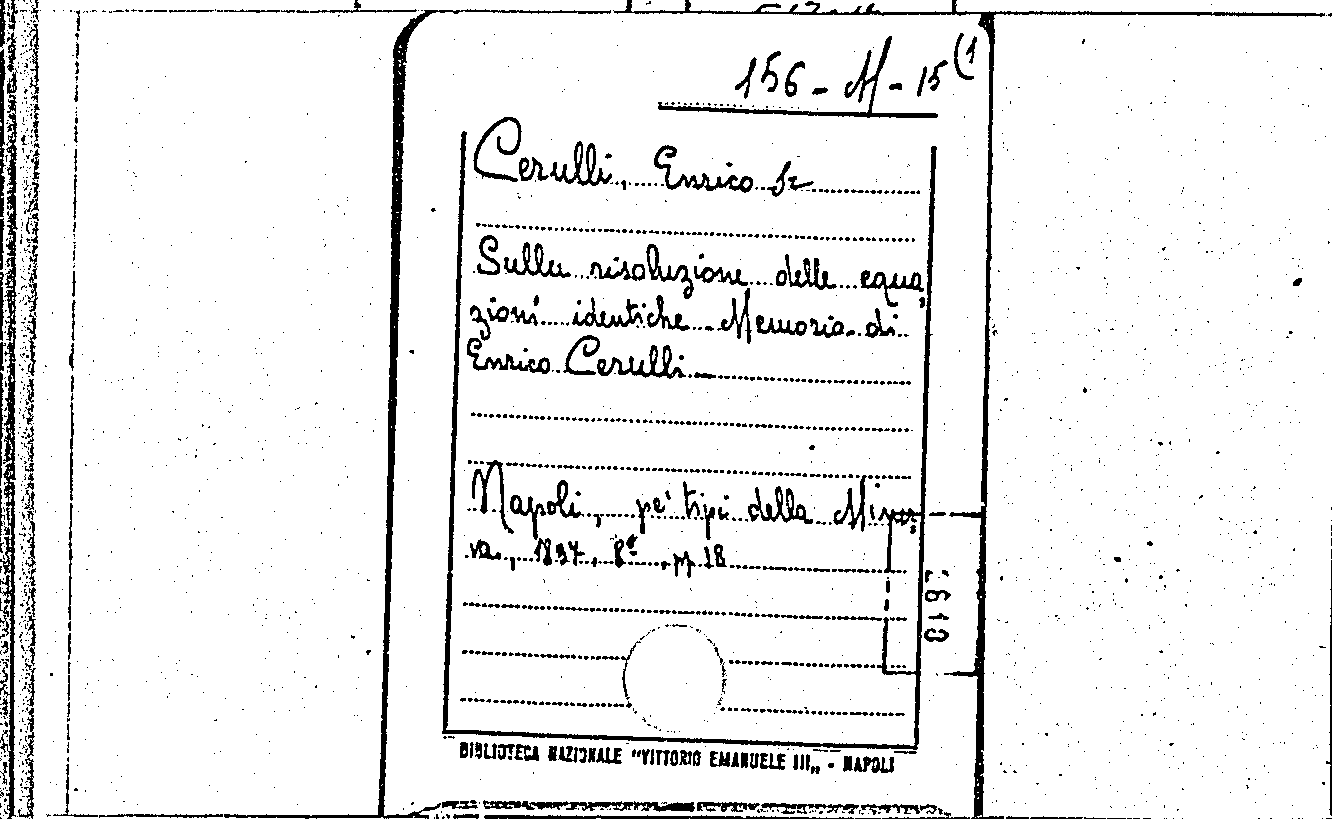 156-M-15(1
Cerulli, Enrico Sr
Sulla risoluzione delle equa,
zioni identiche - Memoria di
Enrico Cerulli -
Napoli, pe' tipi della Miner,
va, 1837, 8º, pp 18
BIBLIOTECA NAZIONALE "VITTORIO EMANUELE III„ - NAPOLI